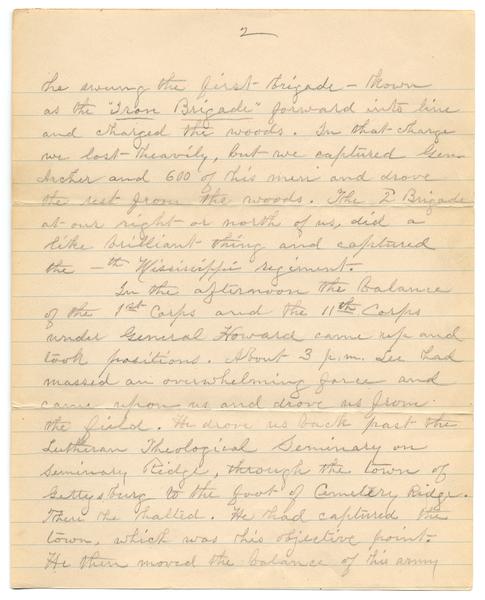 2
he swung the first brigade - known
as the "Iron Brigade" forward into line
and charged the woods. In that charge
we lost heavily, but we captured Gen.
Archer and 600 of his men and drove
the rest from the woods. The 2 Brigade
at our right or north of us, did a
like brilliant thing and captured
the -th Mississippi regiment.
In the afternoon the balance
of the 1st Corps and the 11th Corps
under General Howard came up and
took positions. About 3 p.m. Lee had
massed an overwhelming force and
came upon us and drove us from
the field. He drove us back past the
Lutheran Theological Seminary on
Seminary Ridge, through the town of
Gettysburg to the foot of Cemetery Ridge.
There he halted. He had captured the
town, which was his objective point.
He then moved the balance of his army